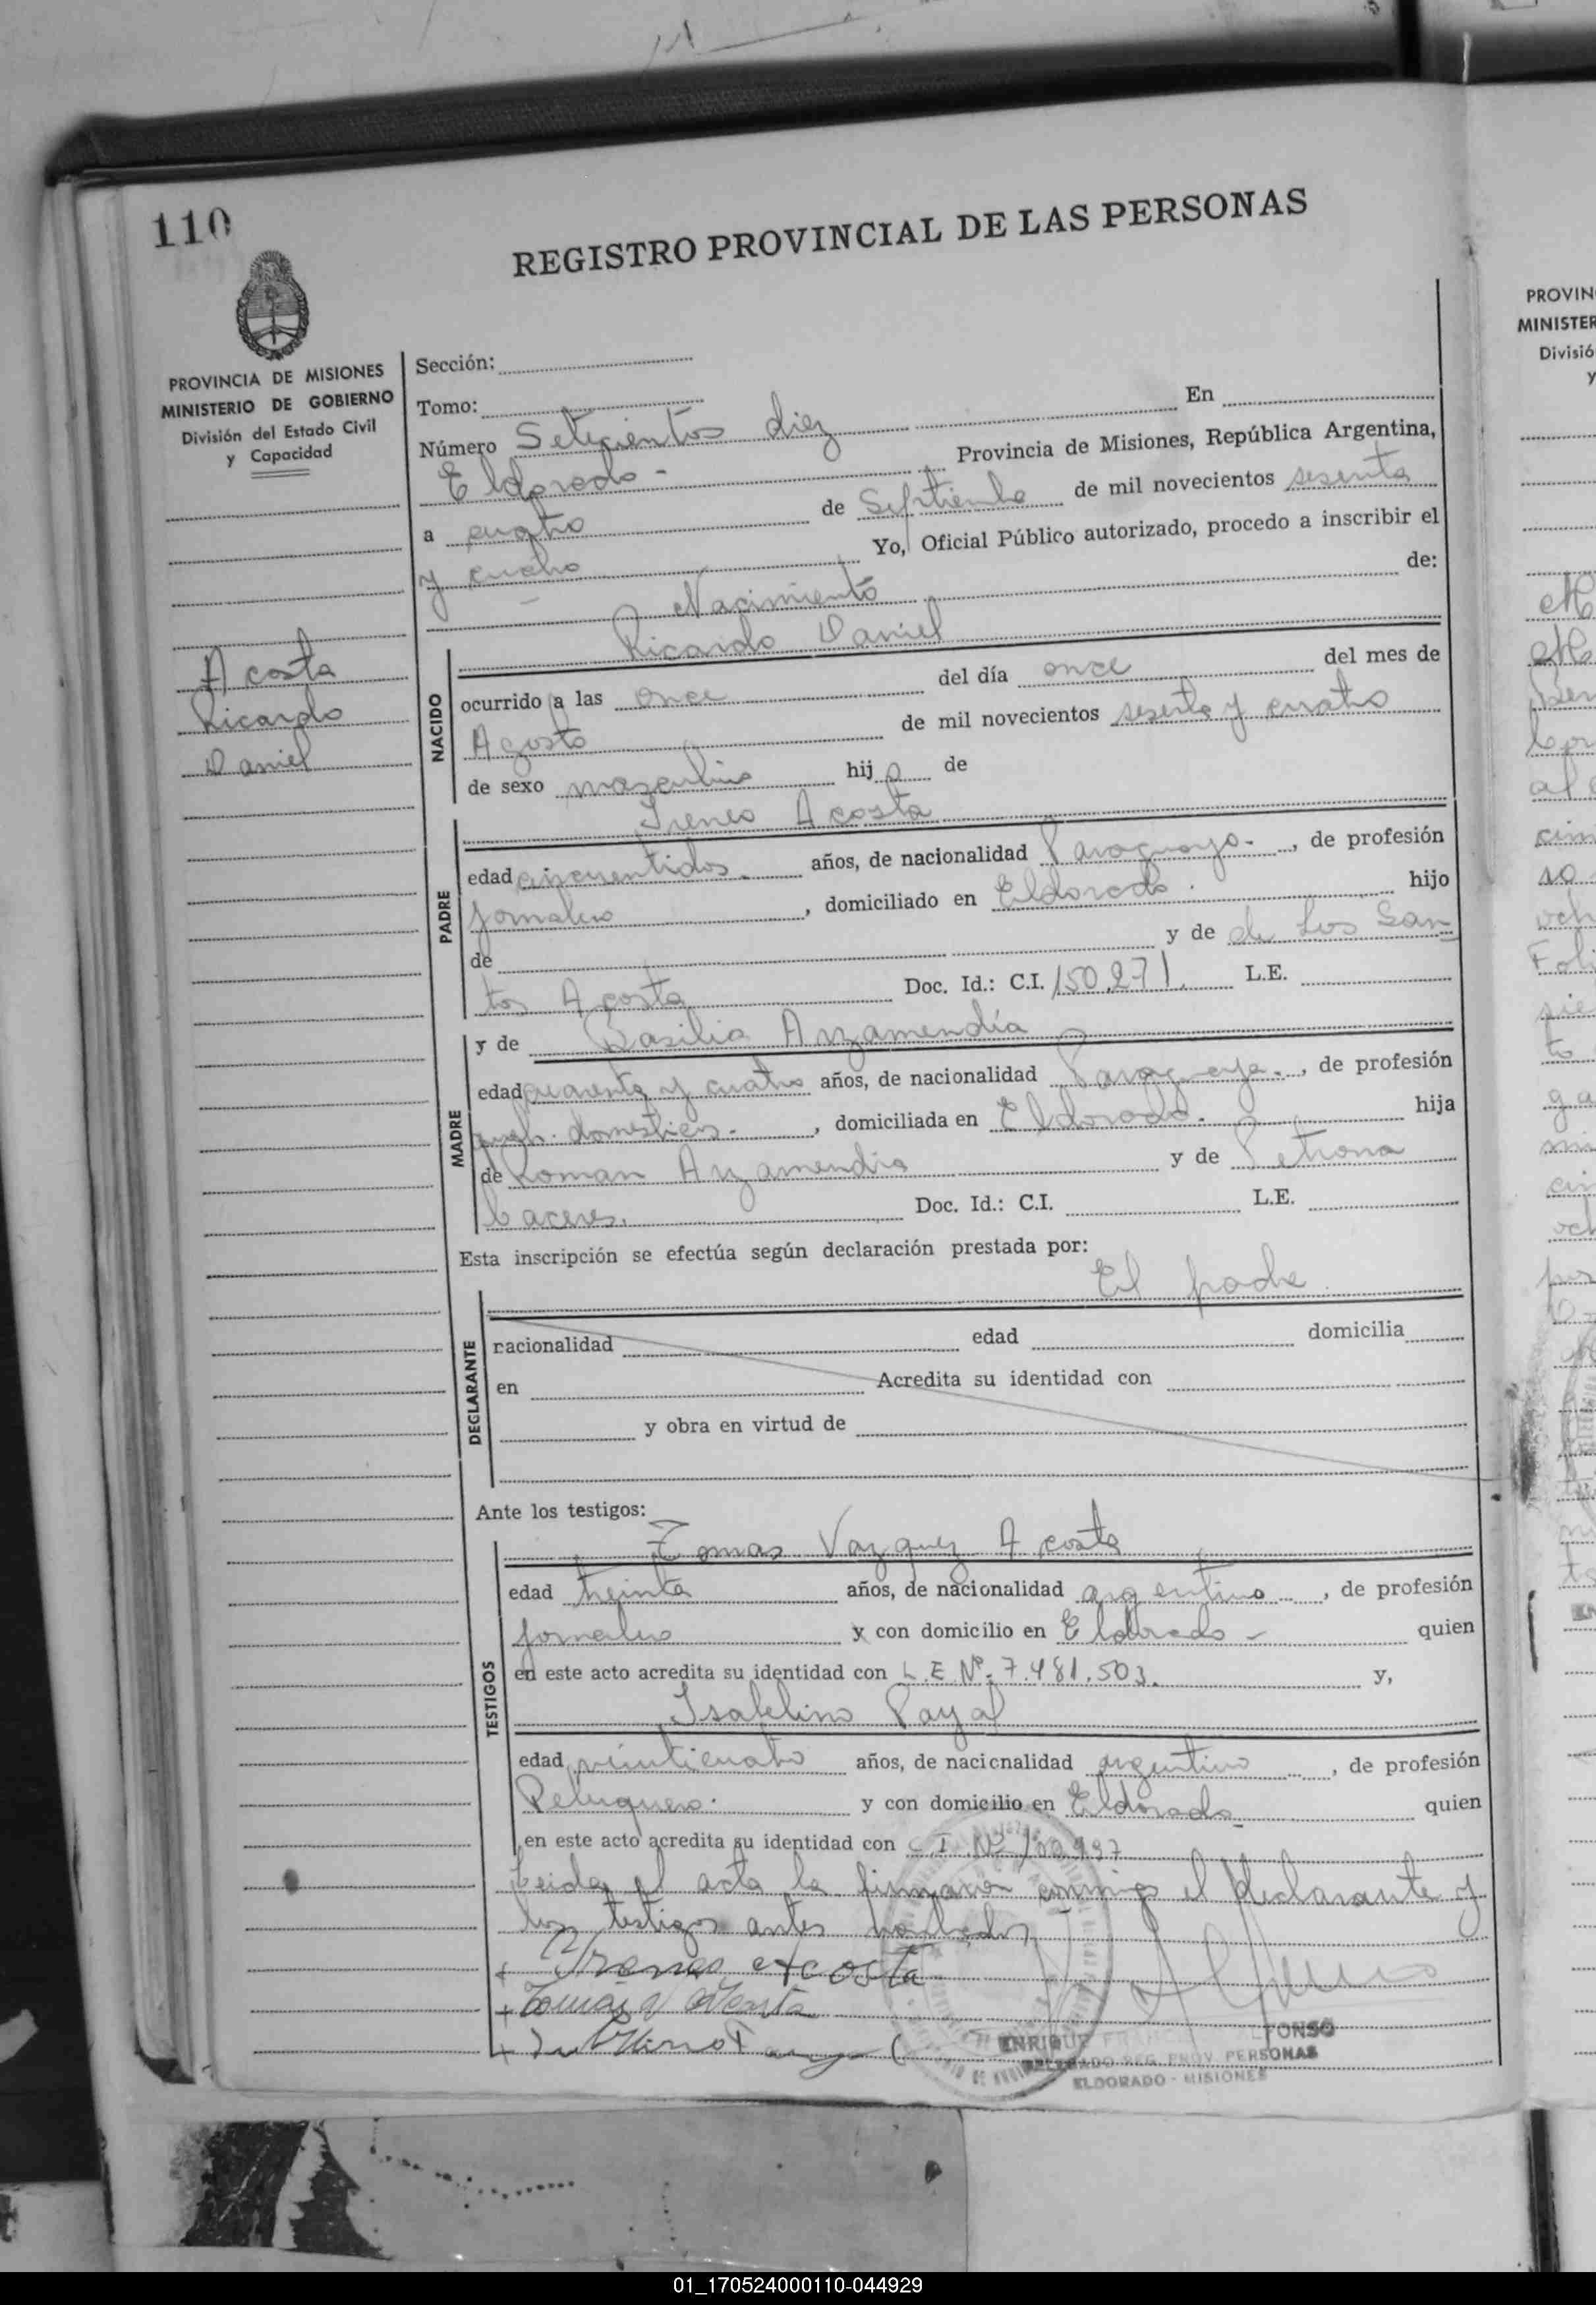 110
REGISTRO PROVINCIAL DE LAS PERSONAS
PROVINCIA DE MISIONES
MINISTERIO DE GOBIERNO
División del Estado Civil
y Capacidad
Acosta
Ricardo
Daniel
Sección:
Tomo:
Número Setecientos diez En
Eldorado - Provincia de Misiones, República Argentina,
a cuatro de Septiembre de mil novecientos sesenta
y cuatro Yo, Oficial Público autorizado, procedo a inscribir el
Nacimiento de:
Ricardo Daniel
NACIDO
ocurrido a las once del día once del mes de
Agosto de mil novecientos sesenta y cuatro
de sexo masculino hijo de
Ireneo Acosta
PADRE
edad cincuentidos. años, de nacionalidad Paraguaya. , de profesión
jornalero , domiciliado en Eldorado. hijo
de y de de Los San
tos Acosta Doc. Id.: C.I. 150.271. L.E.
y de Basilia Arzamendia
MADRE
edad cuarenta y cuatro años, de nacionalidad Paraguaya. , de profesión
queh. domesticos. , domiciliada en Eldorado. hija
de Roman Arzamendia y de Petrona
Caceres. Doc. Id.: C.I. L.E.
Esta inscripción se efectúa según declaración prestada por:
El padre
DECLARANTE
nacionalidad edad domicilia
en Acredita su identidad con
y obra en virtud de
Ante los testigos:
Tomas Vazquez Acosta
TESTIGOS
edad treinta años, de nacionalidad argentino , de profesión
jornalero y con domicilio en Eldorado - quien
en este acto acredita su identidad con L.E. Nº. 7.481.503. y,
Isabelino Payal
edad veinticuatro años, de nacionalidad argentino , de profesión
Peluquero. y con domicilio en Eldorado quien
en este acto acredita su identidad con C.I. Nº 100937
Leida el acta la firmaron conmigo el declarante y
los testigos antes nombrados
+ Ireneo Acosta
+ Tomas V Acosta
ENRIQUE FRANCISCO ALFONSO
DELEGADO REG. PROV. PERSONAS
ELDORADO - MISIONES
PROVIN
MINISTER
Divisió
y
01_170524000110-044929